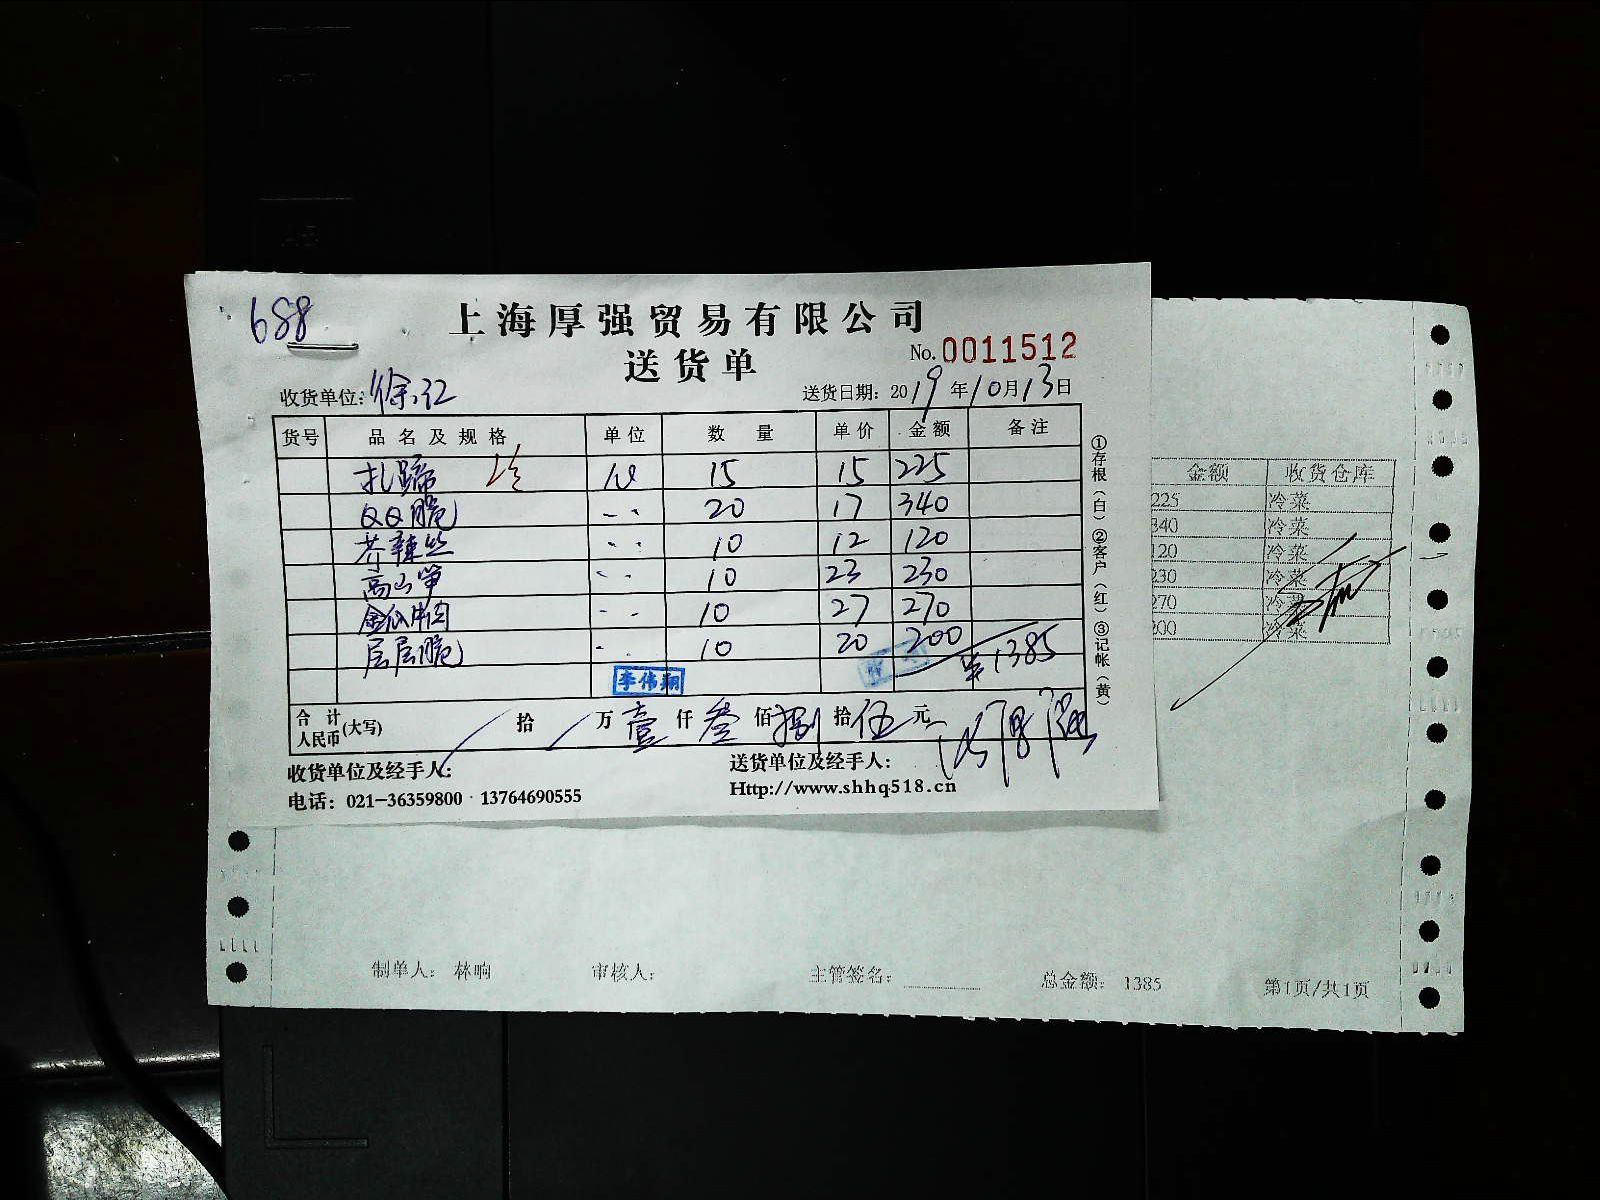 688
上海厚强贸易有限公司
送货单
No. 0011512
收货单位: 徐汇
送货日期: 2019年10月13日
货号 品名及规格 单位 数量 单价 金额 备注
扎蹄 冷 15 15 225
QQ脆 20 17 340
芥辣丝 10 12 120
高山笋 10 23 230
金瓜牛肉 10 27 270
层层脆 10 20 200
1385
李伟翔
合计人民币(大写) 拾 万 壹 仟 叁 佰 捌 拾 伍 元
收货单位及经手人:
送货单位及经手人:
电话: 021-36359800 13764690555
Http://www.shhq518.cn
①存根(白)②客户(红)③记帐(黄)
金额 收货仓库
225 冷菜
340 冷菜
120 冷菜
230 冷菜
270 冷菜
200 冷菜
制单人: 林响 审核人: 主管签名: 总金额: 1385 第1页/共1页